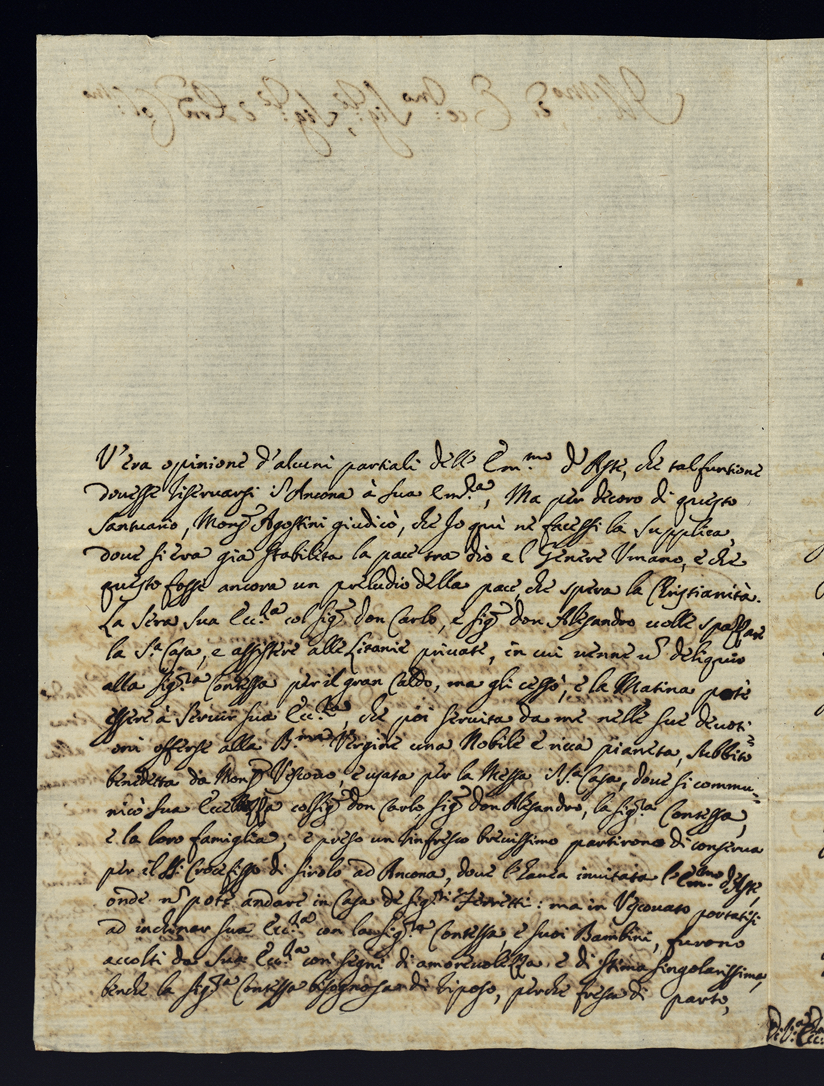 V'era opinione d'alcuni partiali dell' Em.mo d'Aste, che tal funtione
douesse riseruarsi in Ancona à sua Em.za, Ma per decoro di questo
Santuario, Mons.r Agostini giudicò, che Io quì ne facessi la supplica,
doue si era già stabilita la pace tra dio e l Genere Vmano, e che
questo fosse ancora un preludio della pace, che spera la Christianità.
La sera sua Ecc.za col sig.r don Carlo, e sig.r don Alesandro uolle
la S.ta Casa, e assistere alle Litanie priuate, in cui uenne un deliquio
alla sig.ra Contessa per il gran Caldo, ma gli cessò, e la Matina potè
essere à seruir sua Ecc.za, che poi seruita da me nelle sue deuoti
oni offerse alla B.ma Vergine una Nobile e ricca pianeta, subbito
benedetta da Mons.r Vescouo, e usata per la Messa in S.ta Casa, doue si commu-
nicò sua Eccellza co sig.r don Carlo, sig.r don Alesandro, la sig.ra Contessa,
e la loro famiglia, e preso un rinfresco breuissimo partirono di conserua
per il SS. Crocefisso di sirolo ad Ancona, doue l'haueua inuitata l'Em.mo d'Aste,
onde non potè andare in Casa de sig.ri Ferretti: ma in Vescouato portatisi
ad inclinar sua Ecc.za con la sig.ra Contessa, e suoi Bambini, furono
accolti da Sua Ecc.za con segni di amoreuolezza e di stima singolarissima,
benche la sig.ra Contessa bisognosa di riposo, perche fresca di parto,